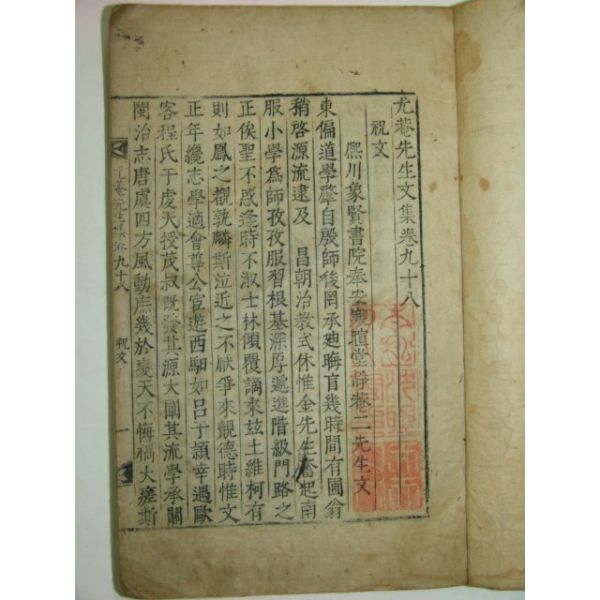 尤菴先生文集卷九十八
祝文
熙川象賢書院奉安寒暄堂靜菴二先生文
東偏道學肇自殷師後罔承廸晦盲幾時間有圃翁
稍啓源流逮及 昌朝治教式休惟金先生奮起南
服小學爲師孜孜服習根基深厚遞進階級門路之
正俟聖不惑逢時不淑士林傾覆謫來玆土維柯有
則如鳳之覩孰麟斯泣近之不厭爭來觀德時惟文
正年纔志學適會尊公官遊西馹如呂于潁幸遇歐
客程氏于虔天授茂叔旣發其源大闡其流學承關
閩治志唐虞四方風動庶幾於變天不悔禍大
斯
尤菴先生集卷九十八
祝文
一